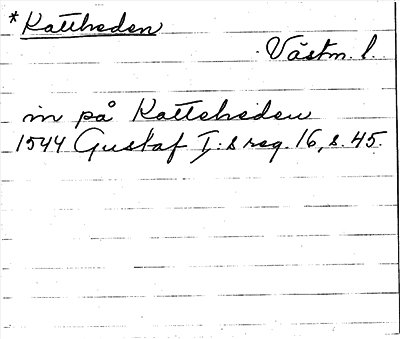 *Kattheden
Västm. l.
in på Katteheden
1544 Gustaf I:s reg. 16, s. 45.